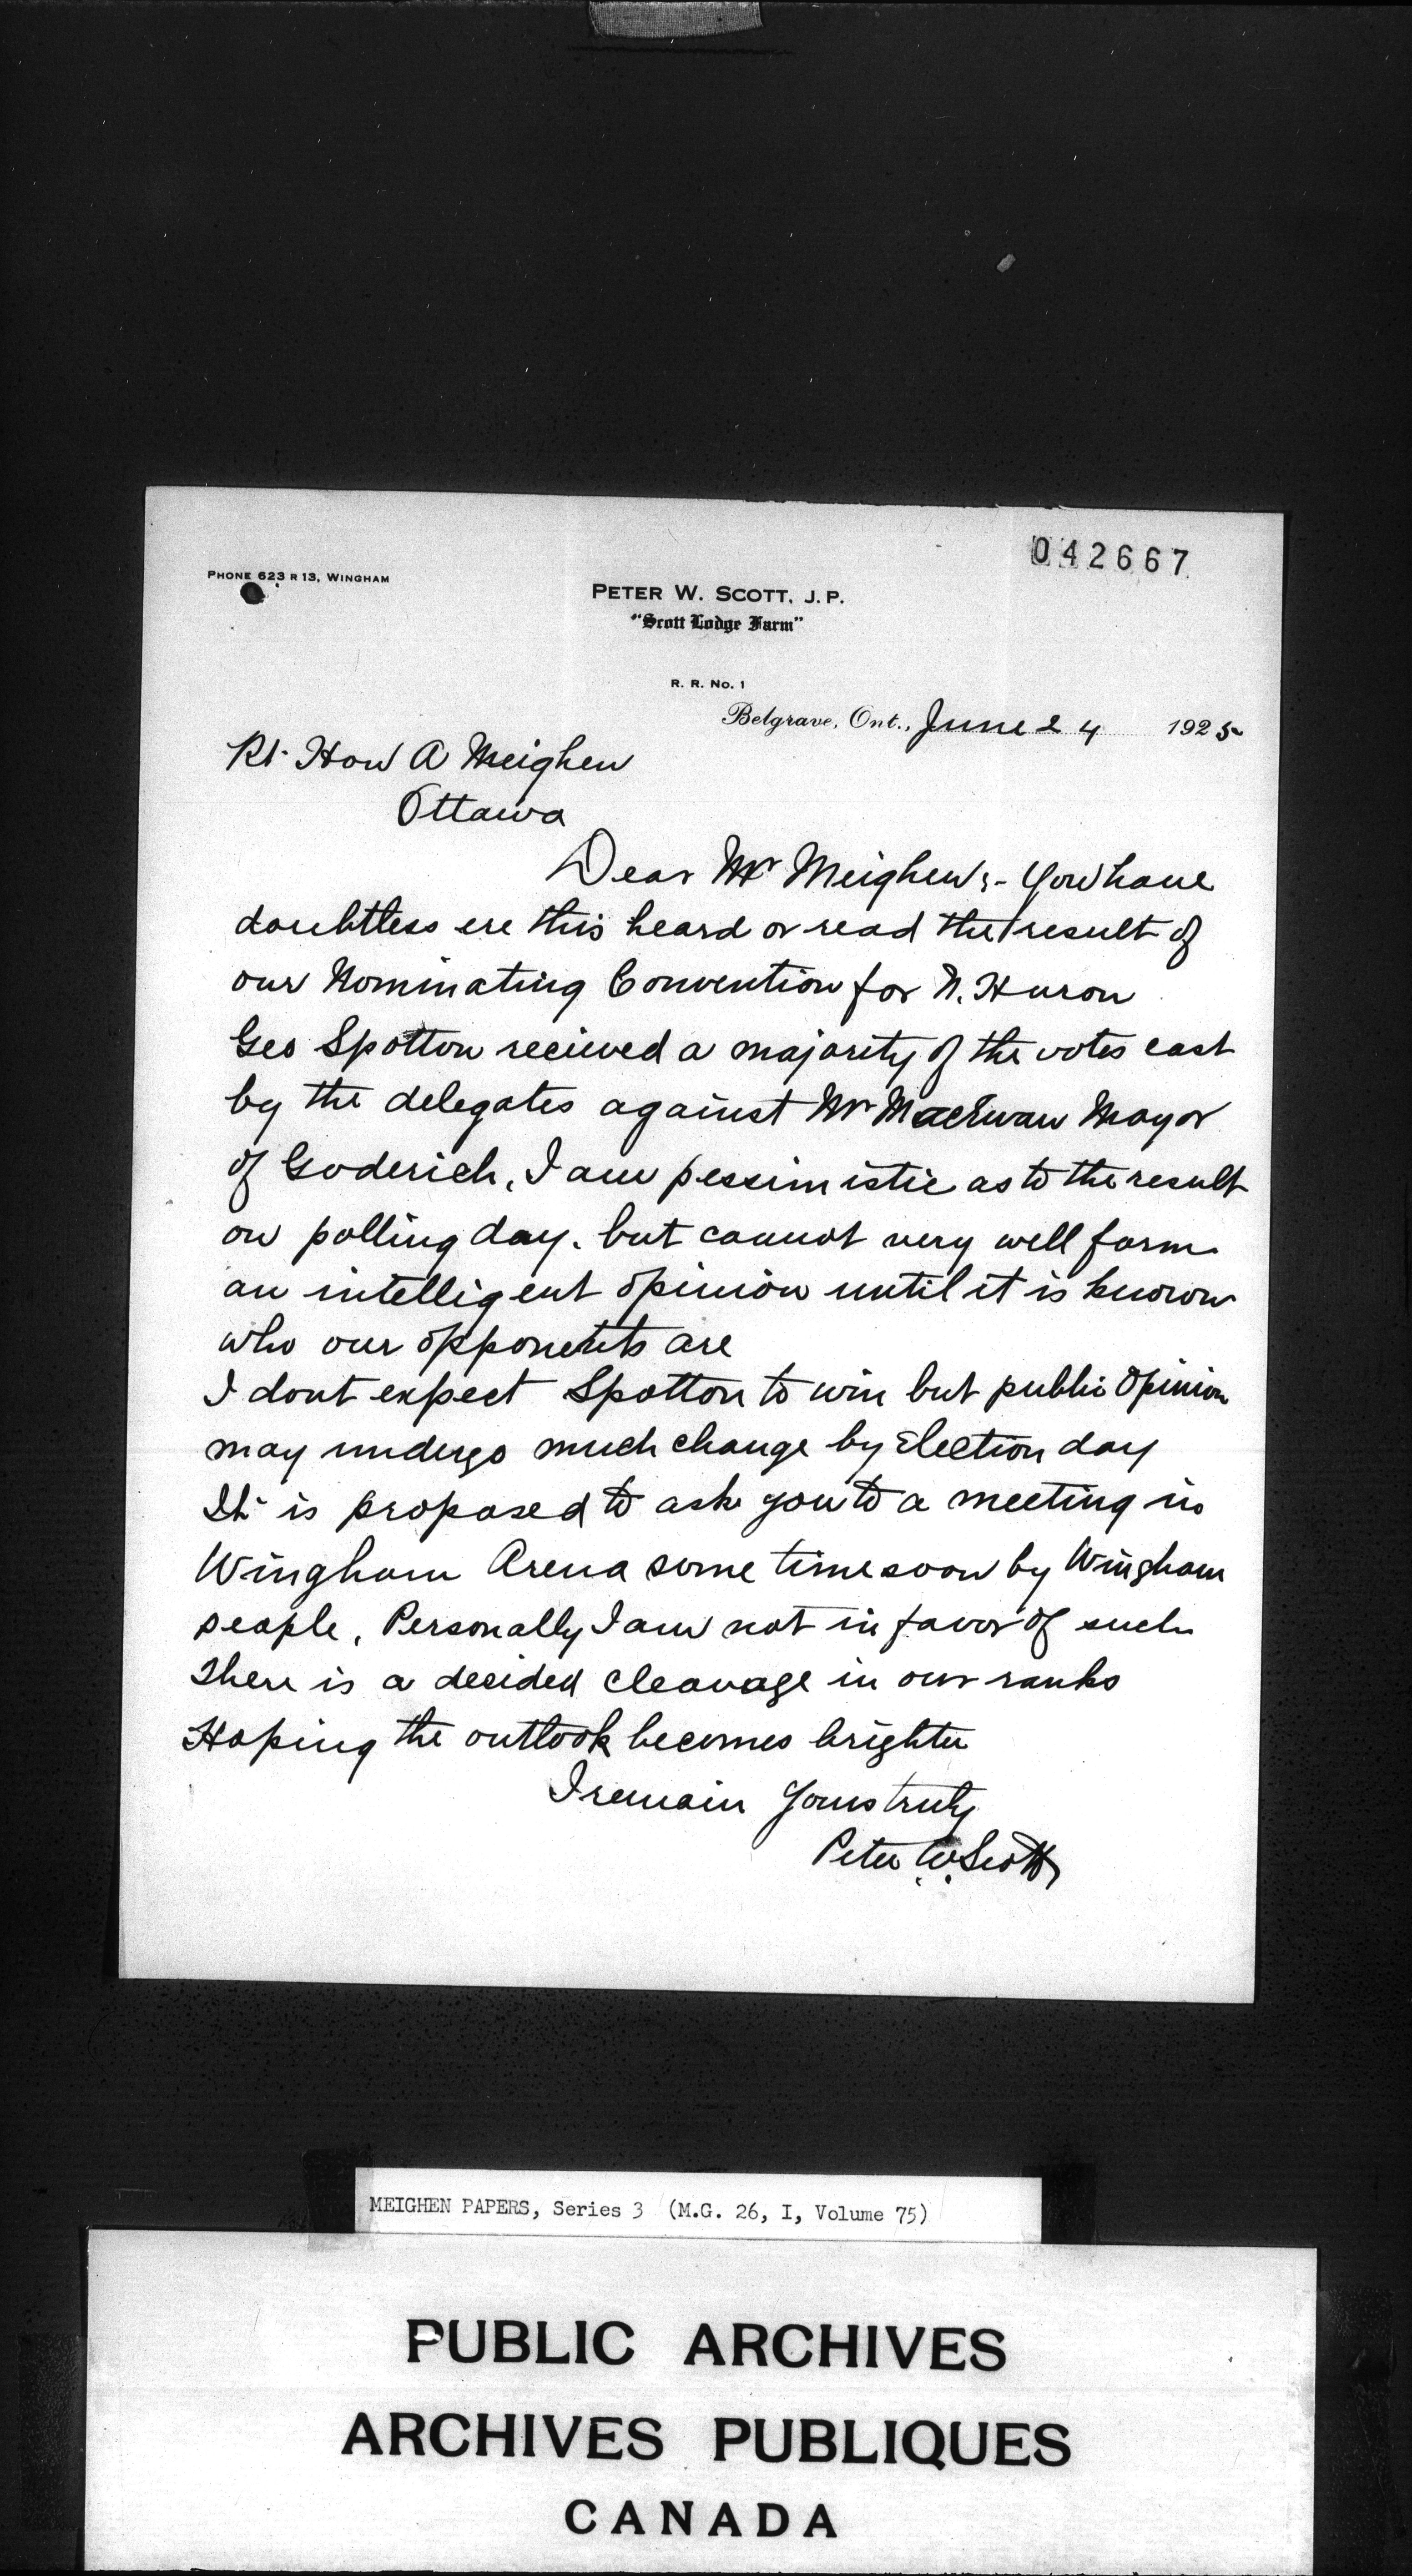 042667
PHONE 623 R 13, WINGHAM
PETER W. SCOTT, J.P.
"Scott Lodge Farm"
R. R. No. 1
Belgrave, Ont., June 24 1925
Rt. Hon A Meighen
Ottawa
Dear Mr Meighen:- You have
doubtless ere this heard or read the result of
our Nominating Convention for N. Huron
Geo Spotton recieved a majority of the votes cast
by the delegates against Mr MacEwan Mayor
of Goderich, I am pessimistic as to the result
on polling day. but cannot very well form
an intelligent opinion until it is known
who our opponents are
I dont expect Spotton to win but public opinion
may undergo much change by Election day
It is proposed to ask you to a meeting in
Wingham Arena some time soon by Wingham
people. Personally I am not in favor of such
There is a decided cleavage in our ranks
Hoping the outlook becomes brighter
I remain Yours truly
Peter W. Scott
MEIGHEN PAPERS, Series 3 (M.G. 26, I, Volume 75)
PUBLIC ARCHIVES
ARCHIVES PUBLIQUES
CANADA